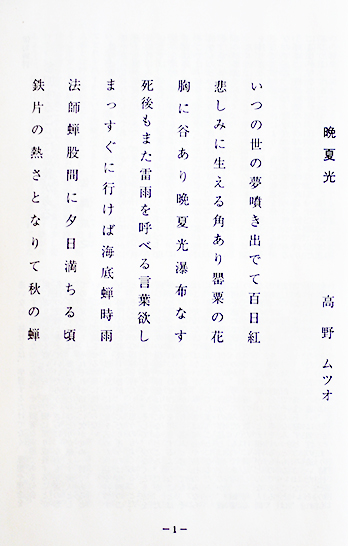 晩夏光
高野ムツオ
いつの世の夢噴き出でて百日紅
悲しみに生える角あり罌粟の花
胸に谷あり晩夏光瀑布なす
死後もまた雷雨を呼べる言葉欲し
まっすぐに行けば海底蝉時雨
法師蝉股間に夕日満ちる頃
鉄片の熱さとなりて秋の蝉
－1－